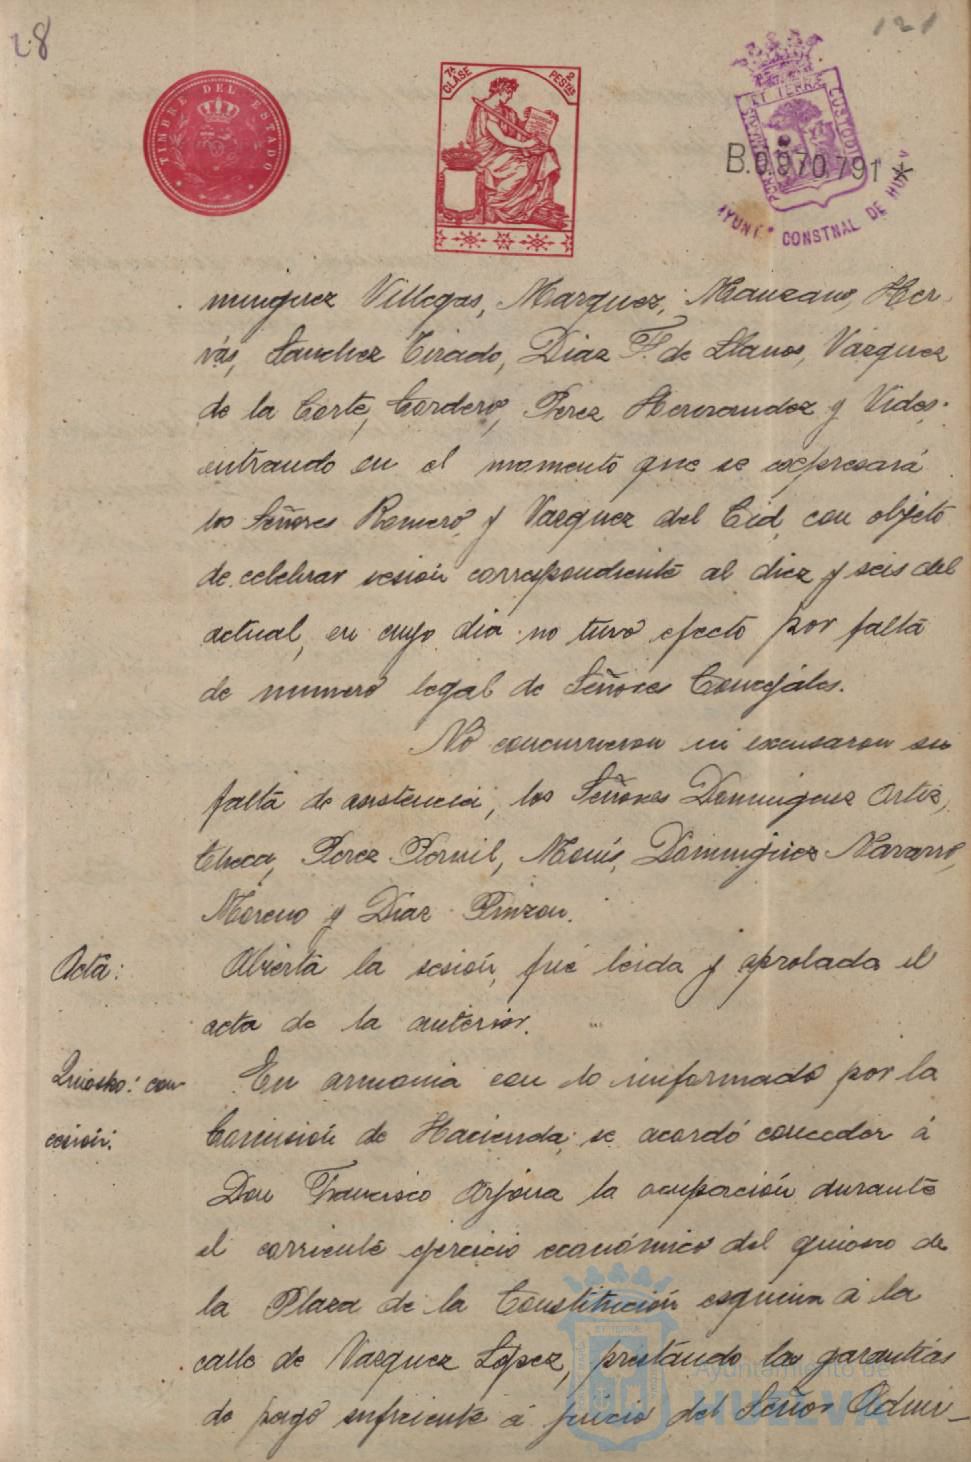 28
121
TIMBRE DEL ESTADO
7ª CLASE 2 PESTAS
ET TERRÆ CUSTODIA
B.0.970.791*
AYUNTº CONSTNAL DE
minguez Villegas, Marquez, Manzano, Her-
vás, Sanchez Tirado, Diaz F. de Llanos, Vázquez
de la Corte, Cordero, Perez Hernandez y Vides.
entrando en el momento que se expresará
los Señores Romero y Vazquez del Cid, con objeto
de celebrar sesión correspondiente al diez y seis del
actual, en cuyo dia no tuvo efecto por falta
de numero legal de Señores Concejales.
No concurrieron ni excusaron su
falta de asistencia, los Señores Dominguez Ortiz,
Checa, Perez Pornil, Monís, Dominguez Navarro,
Moreno y Diaz Pinzon.
Acta:
Abierta la sesión, fué leida y aprobada el
acta de la anterior.
Quiosko: con-
cesión:
En armonia con lo informado por la
Comisión de Hacienda, se acordó conceder á
Don Francisco Arjona la ocupación durante
el corriente ejercicio económico del quiosco de
la Plaza de la Constitución esquina á la
calle de Vazquez López, prestando las garantías
de pago suficiente á juicio del Señor Admi-
Ayuntamiento de
HUELVA